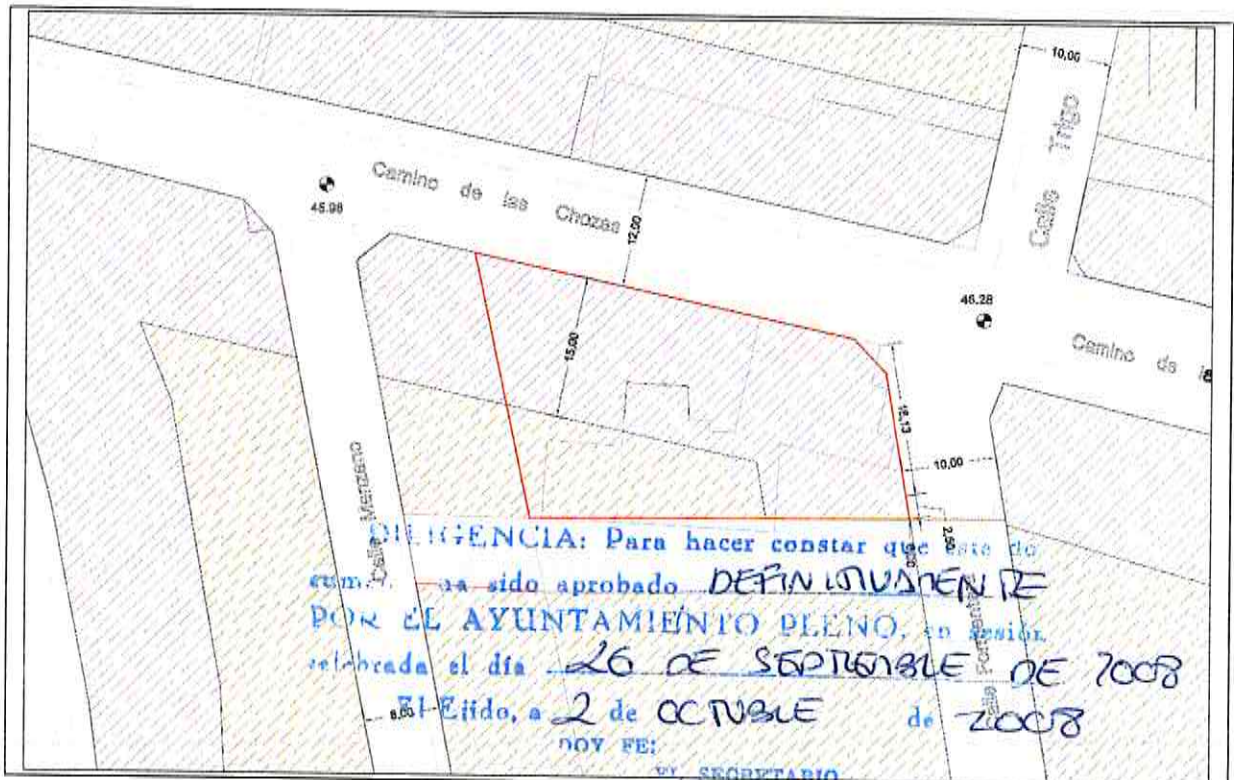 10,00
Calle Trigo
Camino de las Chozas
45.98
12,00
46.28
Camino de
15,00
16,13
10,00
Calle Manzano
2,50
DILIGENCIA: Para hacer constar que este do
cum. ha sido aprobado DEFINITIVAMENTE
POR EL AYUNTAMIENTO PLENO, en sesión
celebrada el día 26 DE SEPTIEMBRE DE 2008
Calle
8,00
El Ejido, a 2 de OCTUBRE de 2008
DOY FE:
EL SECRETARIO